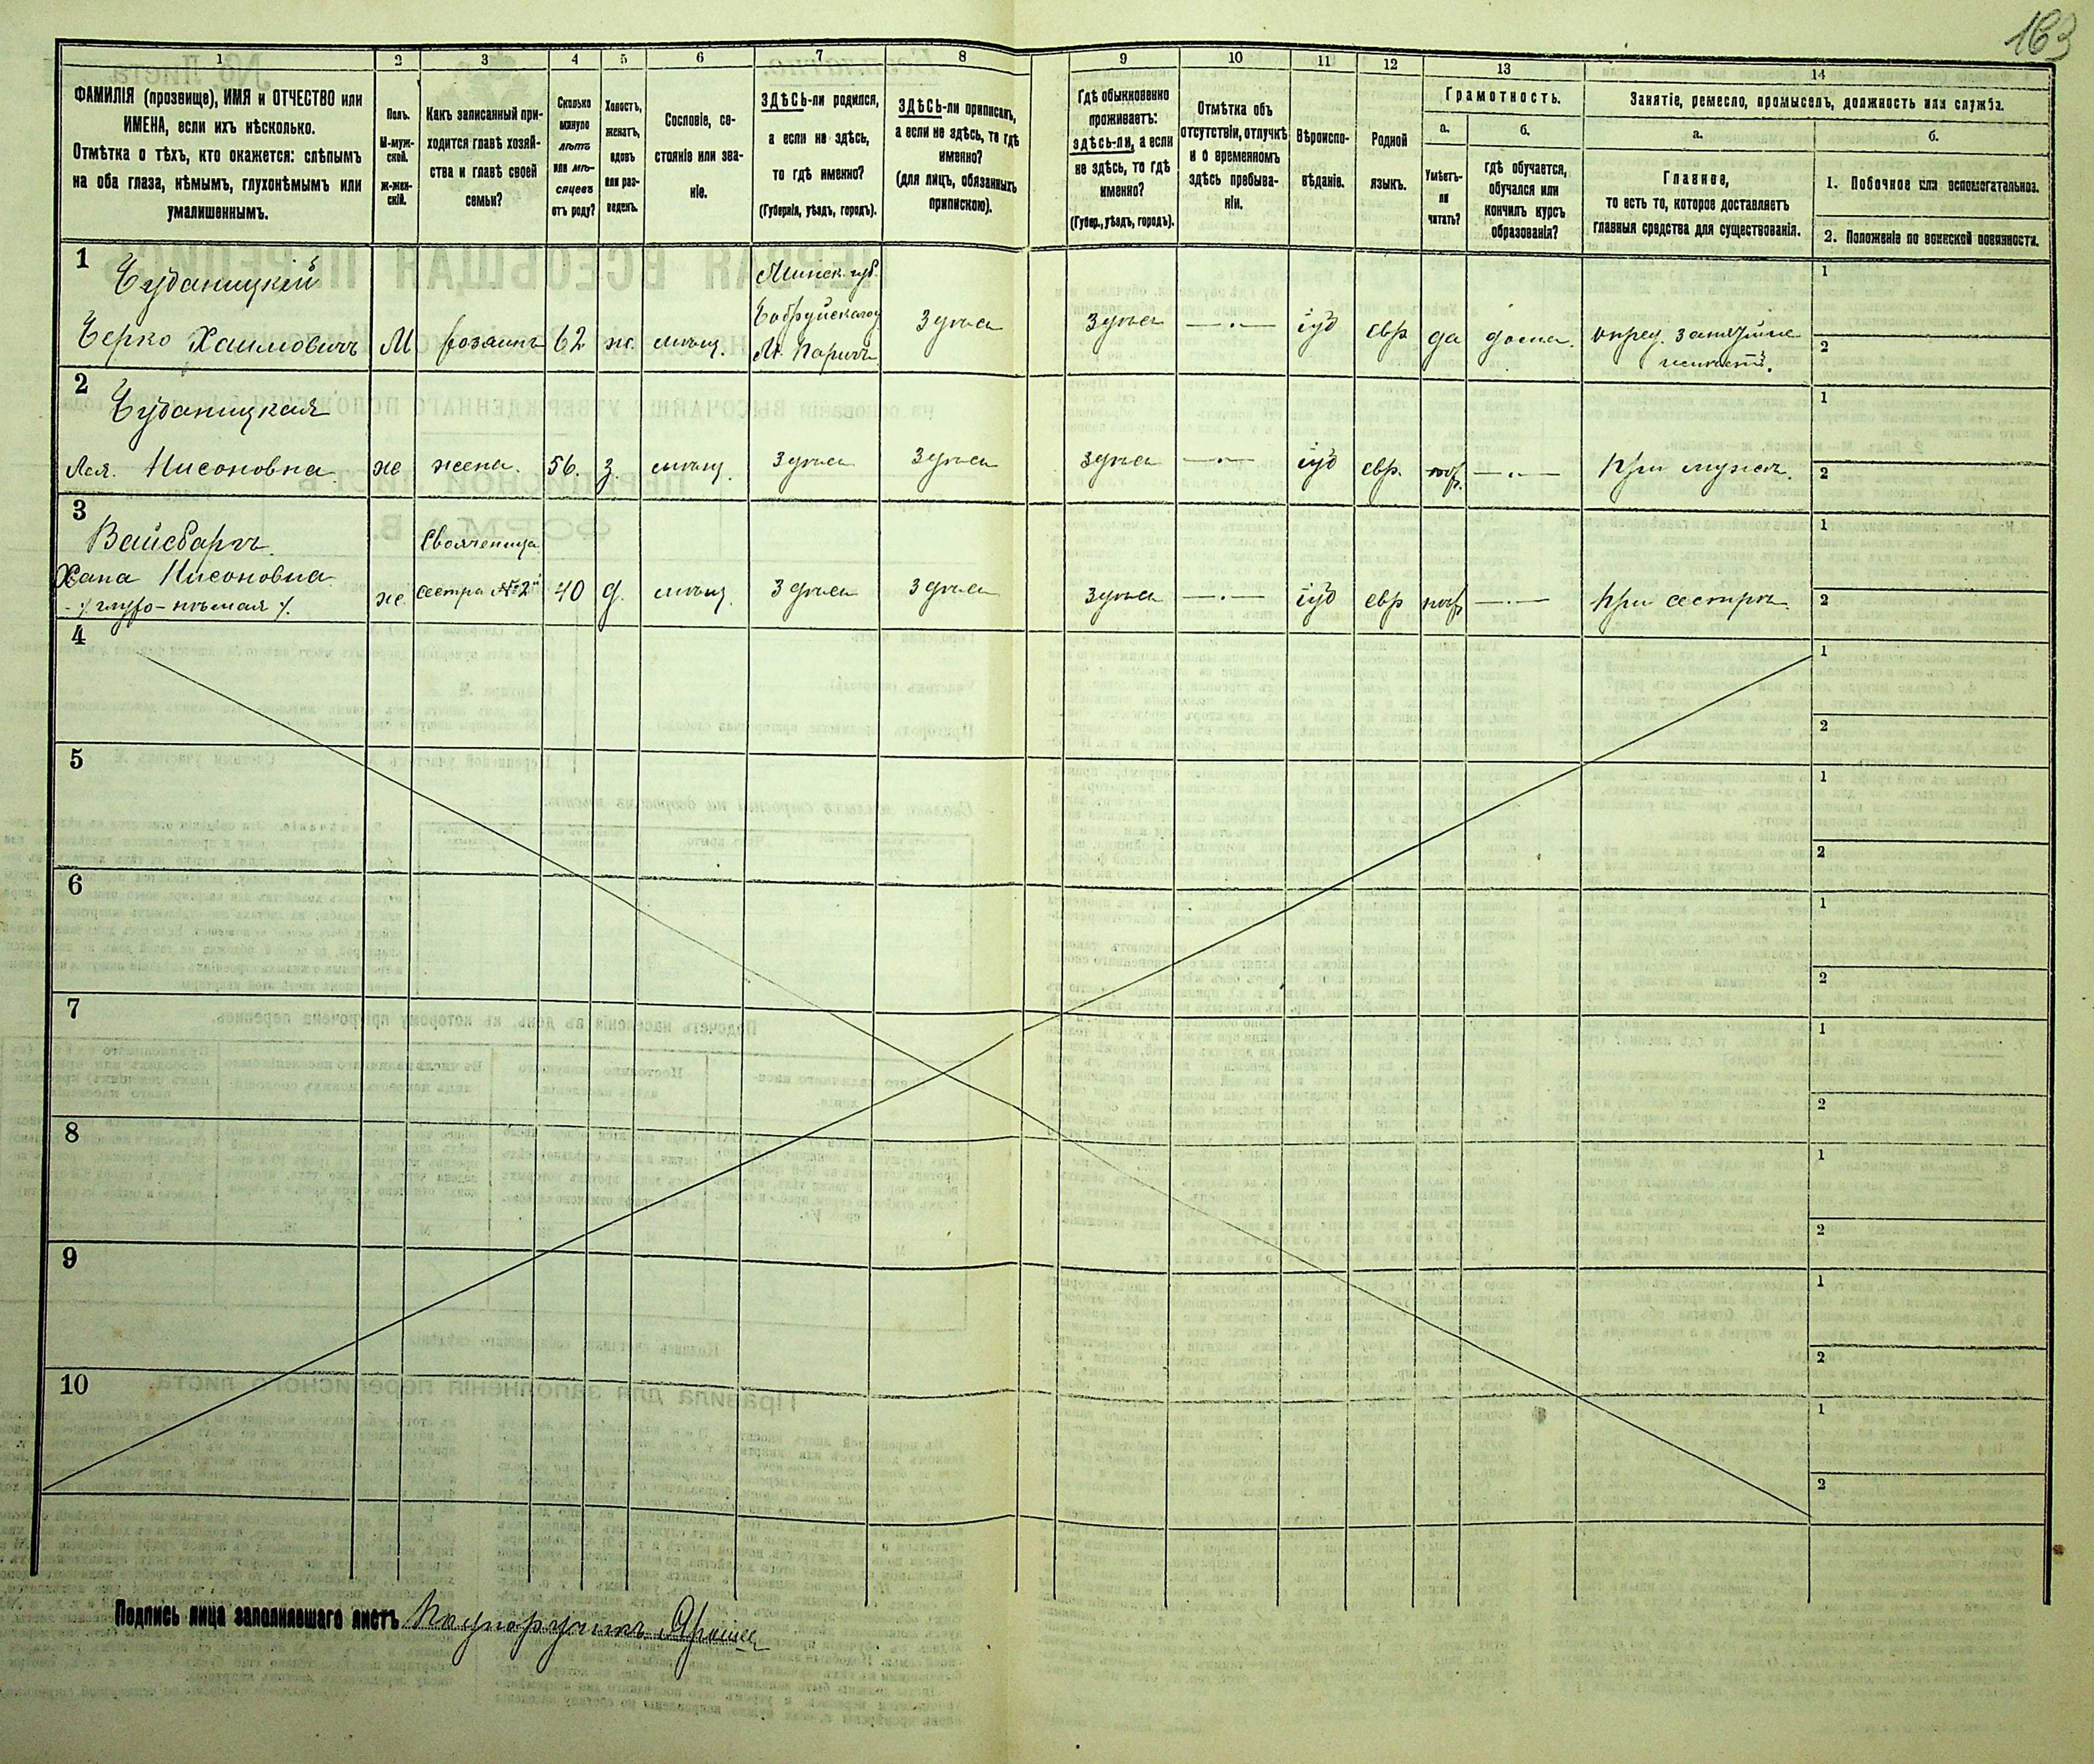 163
1
2
3
4
5
6
7
8
9
10
11
12
13
14
ФАМИЛІЯ (прозвище), ИМЯ и ОТЧЕСТВО или
ИМЕНА, если ихъ нѣсколько.
Отмѣтка о тѣхъ, кто окажется: слѣпымъ
на оба глаза, нѣмымъ, глухонѣмымъ или
умалишеннымъ.
Полъ.
М-муж-
ской.
Ж-жен-
скій.
Какъ записанный при-
ходится главѣ хозяй-
ства и главѣ своей
семьи?
Сколько
минуло
лѣтъ
или мѣ-
сяцевъ
отъ роду?
Холостъ,
женатъ,
вдовъ
или раз-
веденъ.
Сословіе, со-
стояніе или зва-
ніе.
ЗДѢСЬ-ли родился,
а если не здѣсь,
то гдѣ именно?
(Губернія, уѣздъ, городъ).
ЗДѢСЬ-ли приписанъ,
а если не здѣсь, то гдѣ
именно?
(для лицъ, обязанныхъ
припискою).
Гдѣ обыкновенно
проживаетъ:
здѣсь-ли, а если
не здѣсь, то гдѣ
именно?
(Губер., уѣздъ, городъ).
Отмѣтка объ
отсутствіи, отлучкѣ
и о временномъ
здѣсь пребыва-
ніи.
Вѣроиспо-
вѣданіе.
Родной
языкъ.
Грамотность.
а.
Умѣетъ-
ли
читать?
б.
гдѣ обучается,
обучался или
кончилъ курсъ
образованія?
Занятіе, ремесло, промыселъ, должность или служба.
а.
Главное,
то есть то, которое доставляетъ
главныя средства для существованія.
б.
1. Побочное или вспомогательное.
2. Положеніе по воинской повинности.
1
Чуданицкій
Берко Хаимовичъ
М
хозяинъ
62
ж.
мѣщ.
Минск. губ.
Бобруйскаго у
М. Паричи
Здѣсь
здѣсь
іуд
евр
да
дома.
опред. занятій не
имѣетъ.
1
2
2
Чуданицкая
Лея. Нисоновна
ж
жена.
56.
З.
мѣщ.
Здѣсь
Здѣсь
здѣсь
іуд
евр.
При мужѣ.
1
2
3
Вайсбаргъ.
Хана Нисоновна
глухо-нѣмая
ж.
Свояченица
сестра №2й
40
д.
мѣщ.
Здѣсь
Здѣсь
здѣсь
іуд
евр
При сестрѣ
1
2
4
1
2
5
1
2
6
1
2
7
1
2
8
1
2
9
1
2
10
1
2
Подпись лица заполнявшаго листъ